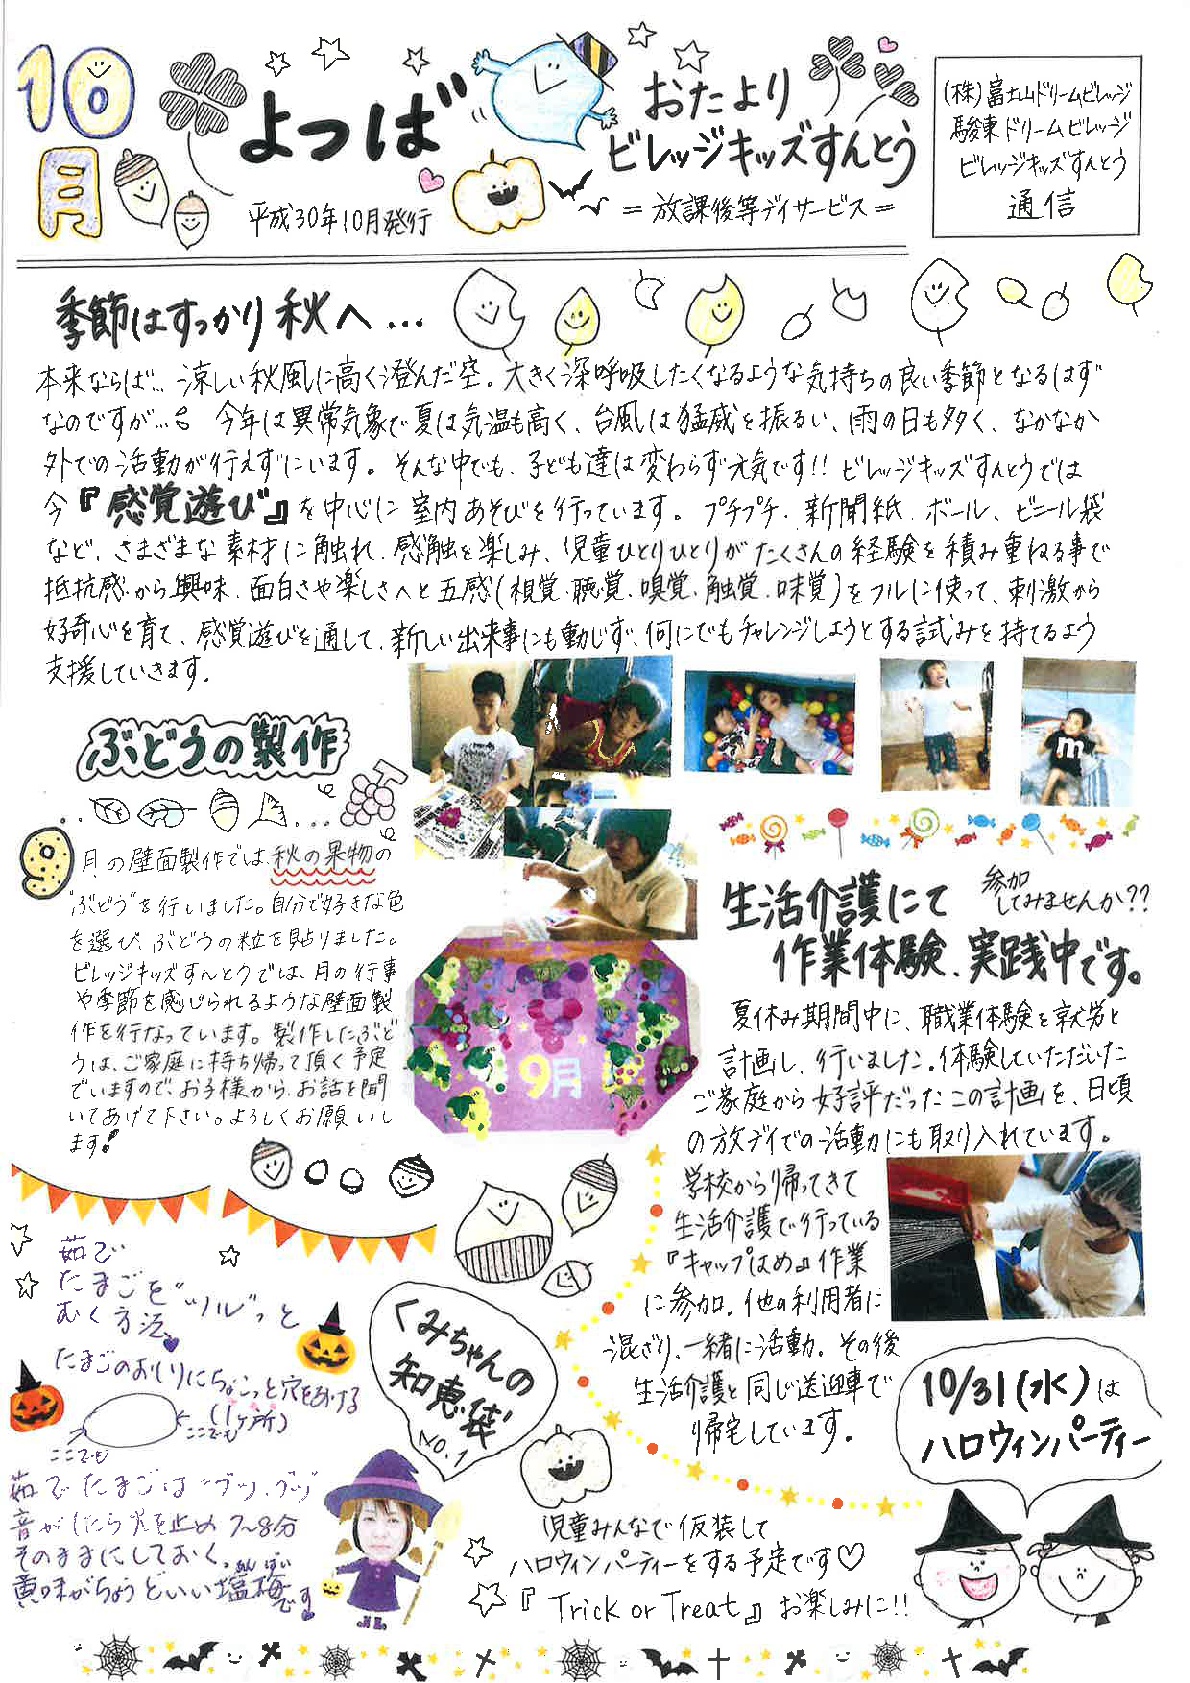 10月
よつば
おたより
ビレッジキッズすんとう
平成30年10月発行
=放課後等デイサービス=
(株)富士山ドリームビレッジ
駿東ドリームビレッジ
ビレッジキッズすんとう
通信
季節はすっかり秋へ...
本来ならば... 涼しい秋風に高く澄んだ空。大きく深呼吸したくなるような気持ちの良い季節となるはず
なのですが... 今年は異常気象で夏は気温も高く、台風は猛威を振るい、雨の日も多く、なかなか
外での活動が行えずにいます。そんな中でも、子ども達は変わらず元気です!! ビレッジキッズすんとうでは
今『感覚遊び』を中心に室内あそびを行っています。プチプチ、新聞紙、ボール、ビニール袋
など、さまざまな素材に触れ、感触を楽しみ、児童ひとりひとりがたくさんの経験を積み重ねる事で
抵抗感から興味、面白さや楽しさへと五感(視覚・聴覚・嗅覚・触覚・味覚)をフルに使って、刺激から
好奇心を育て、感覚遊びを通して、新しい出来事にも動じず、何にでもチャレンジしようとする試みを持てるよう
支援していきます。
ぶどうの製作
9月の壁面製作では、秋の果物の
"ぶどう"を行いました。自分で好きな色
を選び、ぶどうの粒を貼りました。
ビレッジキッズすんとうでは、月の行事
や季節を感じられるような壁面製
作を行なっています。製作したぶど
うは、ご家庭に持ち帰って頂く予定
でいますので、お子様から、お話を聞
いてあげて下さい。よろしくお願いし
ます!
9月
m
生活介護にて
作業体験、実践中です。
参加
してみませんか??
夏休み期間中に、職業体験を就労と
計画し、行いました。体験していただいた
ご家庭から好評だったこの計画を、日頃
の放デイでの活動にも取り入れています。
学校から帰ってきて
生活介護で行っている
『キャップはめ』作業
に参加。他の利用者に
混ざり、一緒に活動。その後
生活介護と同じ送迎車で
帰宅しています。
茹で
たまごを"ツルッ"と
むく方法
たまごのおしりにちょこっと穴をあける
(1ヶ所)
ここでも
ここでも
茹でたまごは"ブツ、ブツ"
音がしたら火を止め 7~8分
そのままにしておく。
黄味がちょうどいい塩梅です。
あんばい
くみちゃんの
知恵袋
NO.1
10/31(水)は
ハロウィンパーティー
児童みんなで仮装して
ハロウィンパーティーをする予定です♡
『Trick or Treat』お楽しみに!!